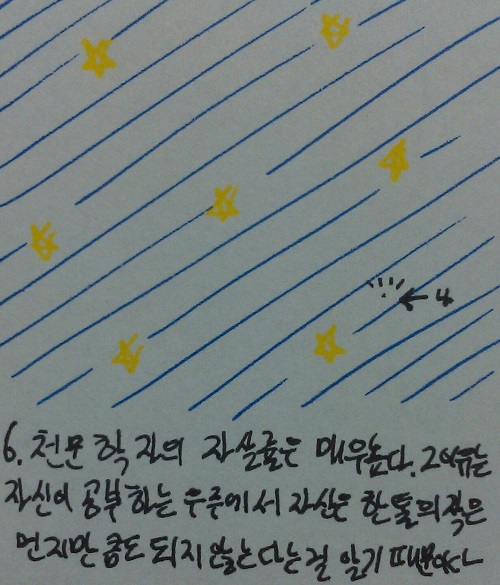 나
6. 천문학자의 자살률은 매우높다. 그이유는
자신이 공부하는 우주에서 자신은 한톨의 작은
먼지만큼도 되지 않는다는걸 알기 때문이다